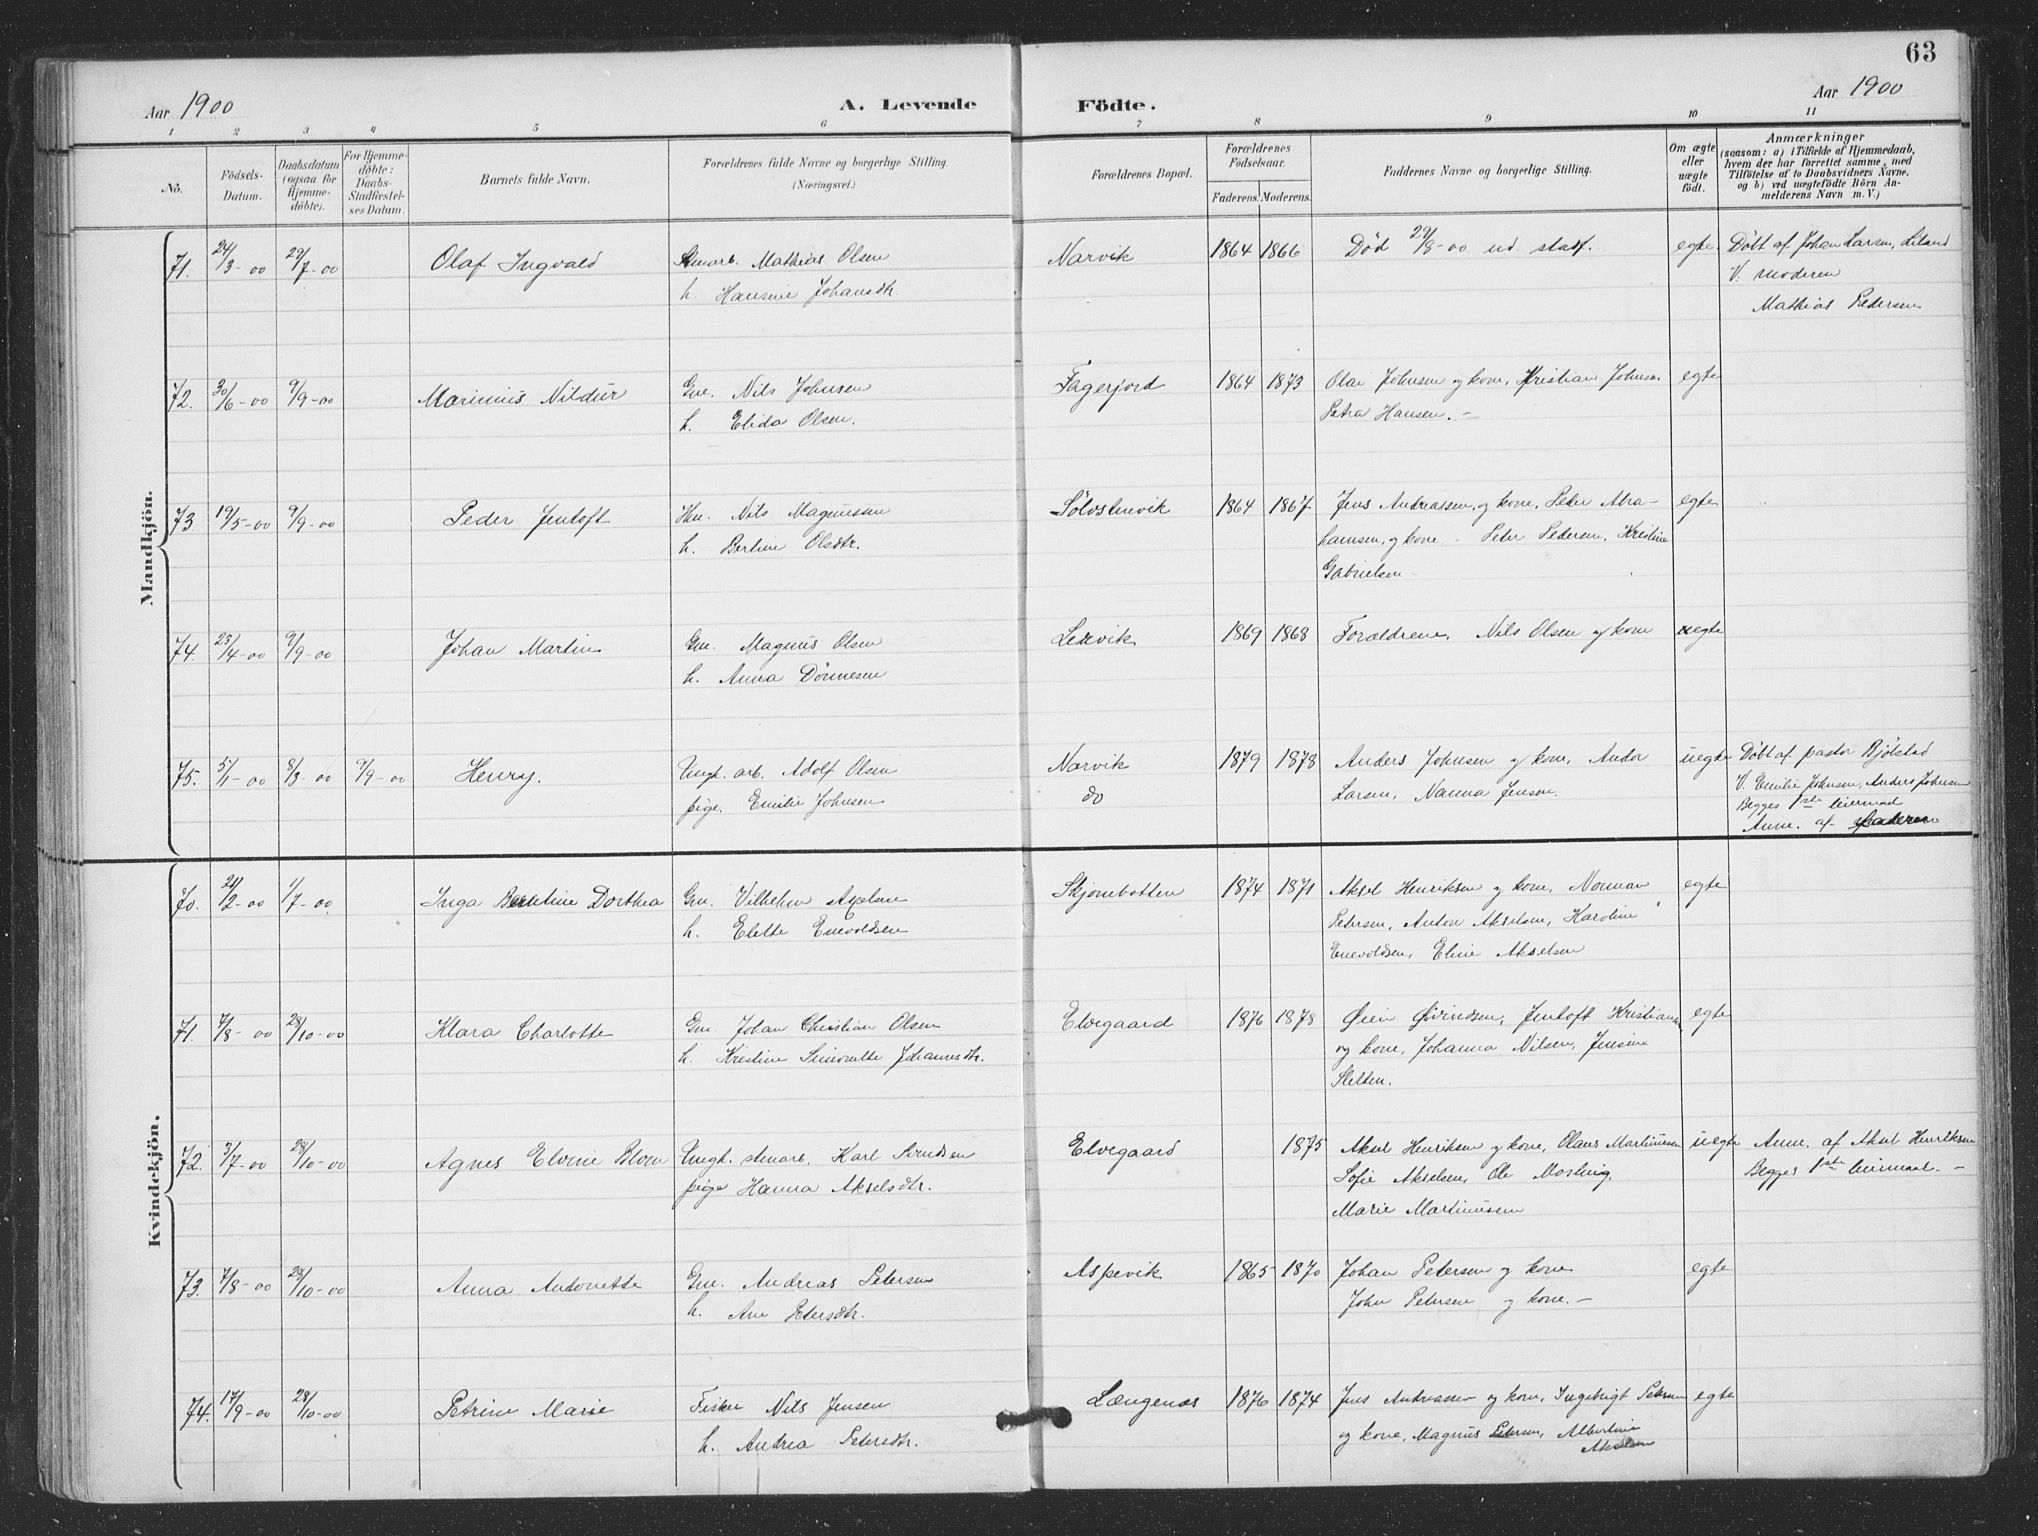 63
Aar 1900
A. Levende Födte.
Aar 1900
1 2 3 4 5 6 7 8 9 10 11
No.
Födsels-Datum.
Daabsdatum (ogsaa for Hjemmedöbte).
For Hjemmedöbte: Daabs-Stadfæstelses Datum.
Barnets fulde Navn.
Forældrenes fulde Navne og borgerlige Stilling.
(Næringsvei.)
Forældrenes Bopæl.
Forældrenes Födselsaar.
Faderens. Moderens.
Faddernes Navne og borgerlige Stilling.
Om ægte eller uægte födt.
Anmærkninger
(saasom: a) i Tilfælde af Hjemmedaab,
hvem der har forrettet samme, med
Tilföielse af to Daabsvidners Navne.
og b) ved uægtefödte Börn An-
melderens Navn m. V.)
Mandkjön.
71. 24/3-00 29/7-00 Olaf Ingvald Stenarb. Mathias Olsen Narvik 1864 1866 Død 29/8-00 ud. stadf. egte Døbt af Johan Larsen, Liland
h. Hansine Johansdtr. V. moderen
Mathias Pedersen
72. 30/6-00 9/9-00 Marinius Nildur Gm. Nils Johnsen Fagerjord 1864 1873 Olai Johnsen og kone, Kristian Johnsen egte
h. Elida Olsen. Petra Hansen. -
73. 19/5-00 9/9-00 Peder Jentoft Hm. Nils Magnussen Sølvstenvik 1864 1867 Jens Andreassen, og kone, Peder Abra- egte
h. Berline Olsdtr. hamsen, og kone - Peter Pedersen, Kristine
Gabrielsen -
74. 23/4-00 9/9-00 Johan Martin Gm. Magnus Olsen Lervik 1869 1868 Forældrene, Nils Olsen og kone egte
h. Anna Dønnesen
75. 5/1-00 8/3-00 9/9-00 Henry. Ungk. arb. Adolf Olsen Narvik 1879 1878 Anders Johnsen og kone, Andor uegte Døbt af pastor Bjølstad
pige. Emilie Johnsen do Larsen, Nanna Jensen. V. Emilie Johnsen, Anders Johnsen
Begges 1ste leiermaal
Anm. af Faderen
Kvindekjön.
70. 21/2-00 1/7-00 Inga Berntine Dorthea Gm. Vilhelm Axelsen Skjombotten 1874 1871 Aksel Henriksen og kone, Norman egte
h. Elette Enevoldsen Petersen, Anton Akselsen, Karoline
Enevoldsen, Eline Akselsen
71. 7/8-00 28/10-00 Klara Charlotte Gm. Johan Christian Olsen Elvegaard 1876 1878 Øien Øvindsen, Jentoft Kristians. egte
h. Kristine Simonette Johannesdtr. og kone, Johanna Nilsen, Jensine
Sletten.
72. 3/7-00 28/10-00 Agnes Elvine Blom Ungk. stenarb. Karl Knudsen Elvegaard 1875 Aksel Henriksen og kone, Olaus Martinussen uegte Anm. af Aksel Henriksen
pige Hanna Akselsdtr. Sofie Akselsen, Ole Mosling, Begges 1ste leiermaal. -
Marie Martinussen
73. 7/8-00 28/10-00 Anna Antonette Gm. Andreas Petersen Aspevik 1865 1870 Johan Petersen og kone egte
h. Ane Petersdtr. John Petersen og kone. -
74. 17/9-00 28/10-00 Petrine Marie Fisker Nils Jensen Længenæs 1876 1874 Jens Andreassen og kone, Ingebrigt Petersen egte
h. Andrea Petersdtr. og kone, Magnus Petersen, Albertine
Akselsen